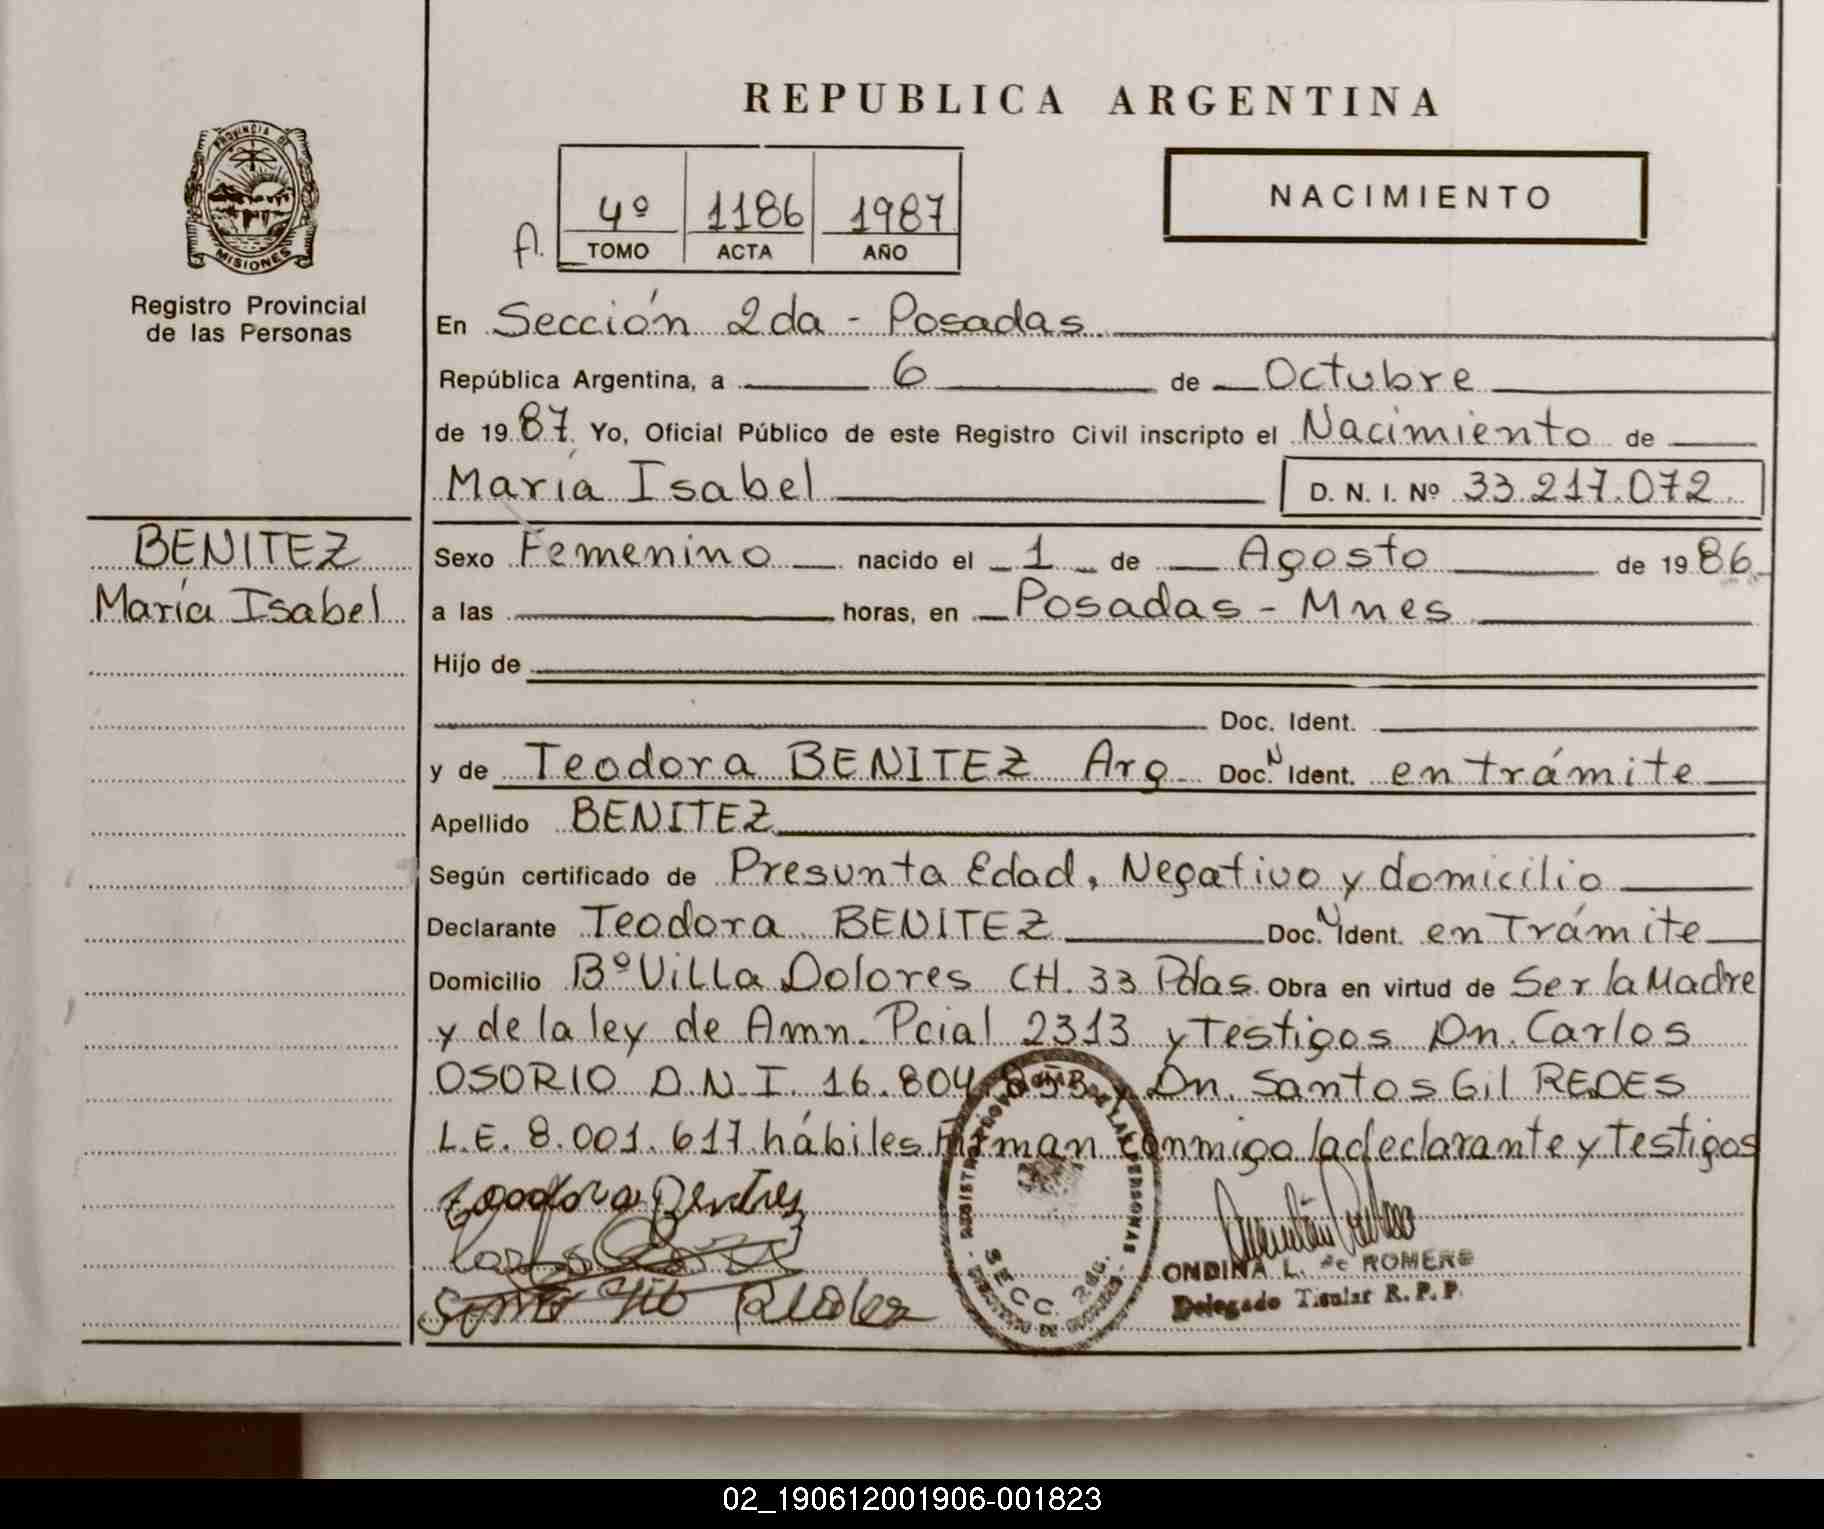 REPUBLICA ARGENTINA
PROVINCIA DE
MISIONES
Registro Provincial
de las Personas
A. 4º 1186 1987
TOMO ACTA AÑO
NACIMIENTO
En Sección 2da - Posadas
República Argentina, a 6 de Octubre
de 1987. Yo, Oficial Público de este Registro Civil inscripto el Nacimiento de
María Isabel D. N. I. Nº 33.217.072
BENITEZ
María Isabel
Sexo Femenino nacido el 1 de Agosto de 1986
a las horas, en Posadas - Mnes
Hijo de
Doc. Ident.
y de Teodora BENITEZ Arg. Doc. N Ident. en trámite
Apellido BENITEZ
Según certificado de Presunta Edad, Negativo y domicilio
Declarante Teodora BENITEZ Doc. N Ident. en Trámite
Domicilio Bº Villa Dolores CH. 33 Pdas. Obra en virtud de Ser la Madre
y de la ley de Amn. Pcial 2313 y Testigos Dn. Carlos
OSORIO D.N.I. 16.804 Dn. Santos Gil REDES
L.E. 8.001.617 hábiles Firman conmigo la declarante y Testigos
SECC. 2da.
ONDINA L. de ROMERO
Delegado Titular R. P. P.
02_190612001906-001823